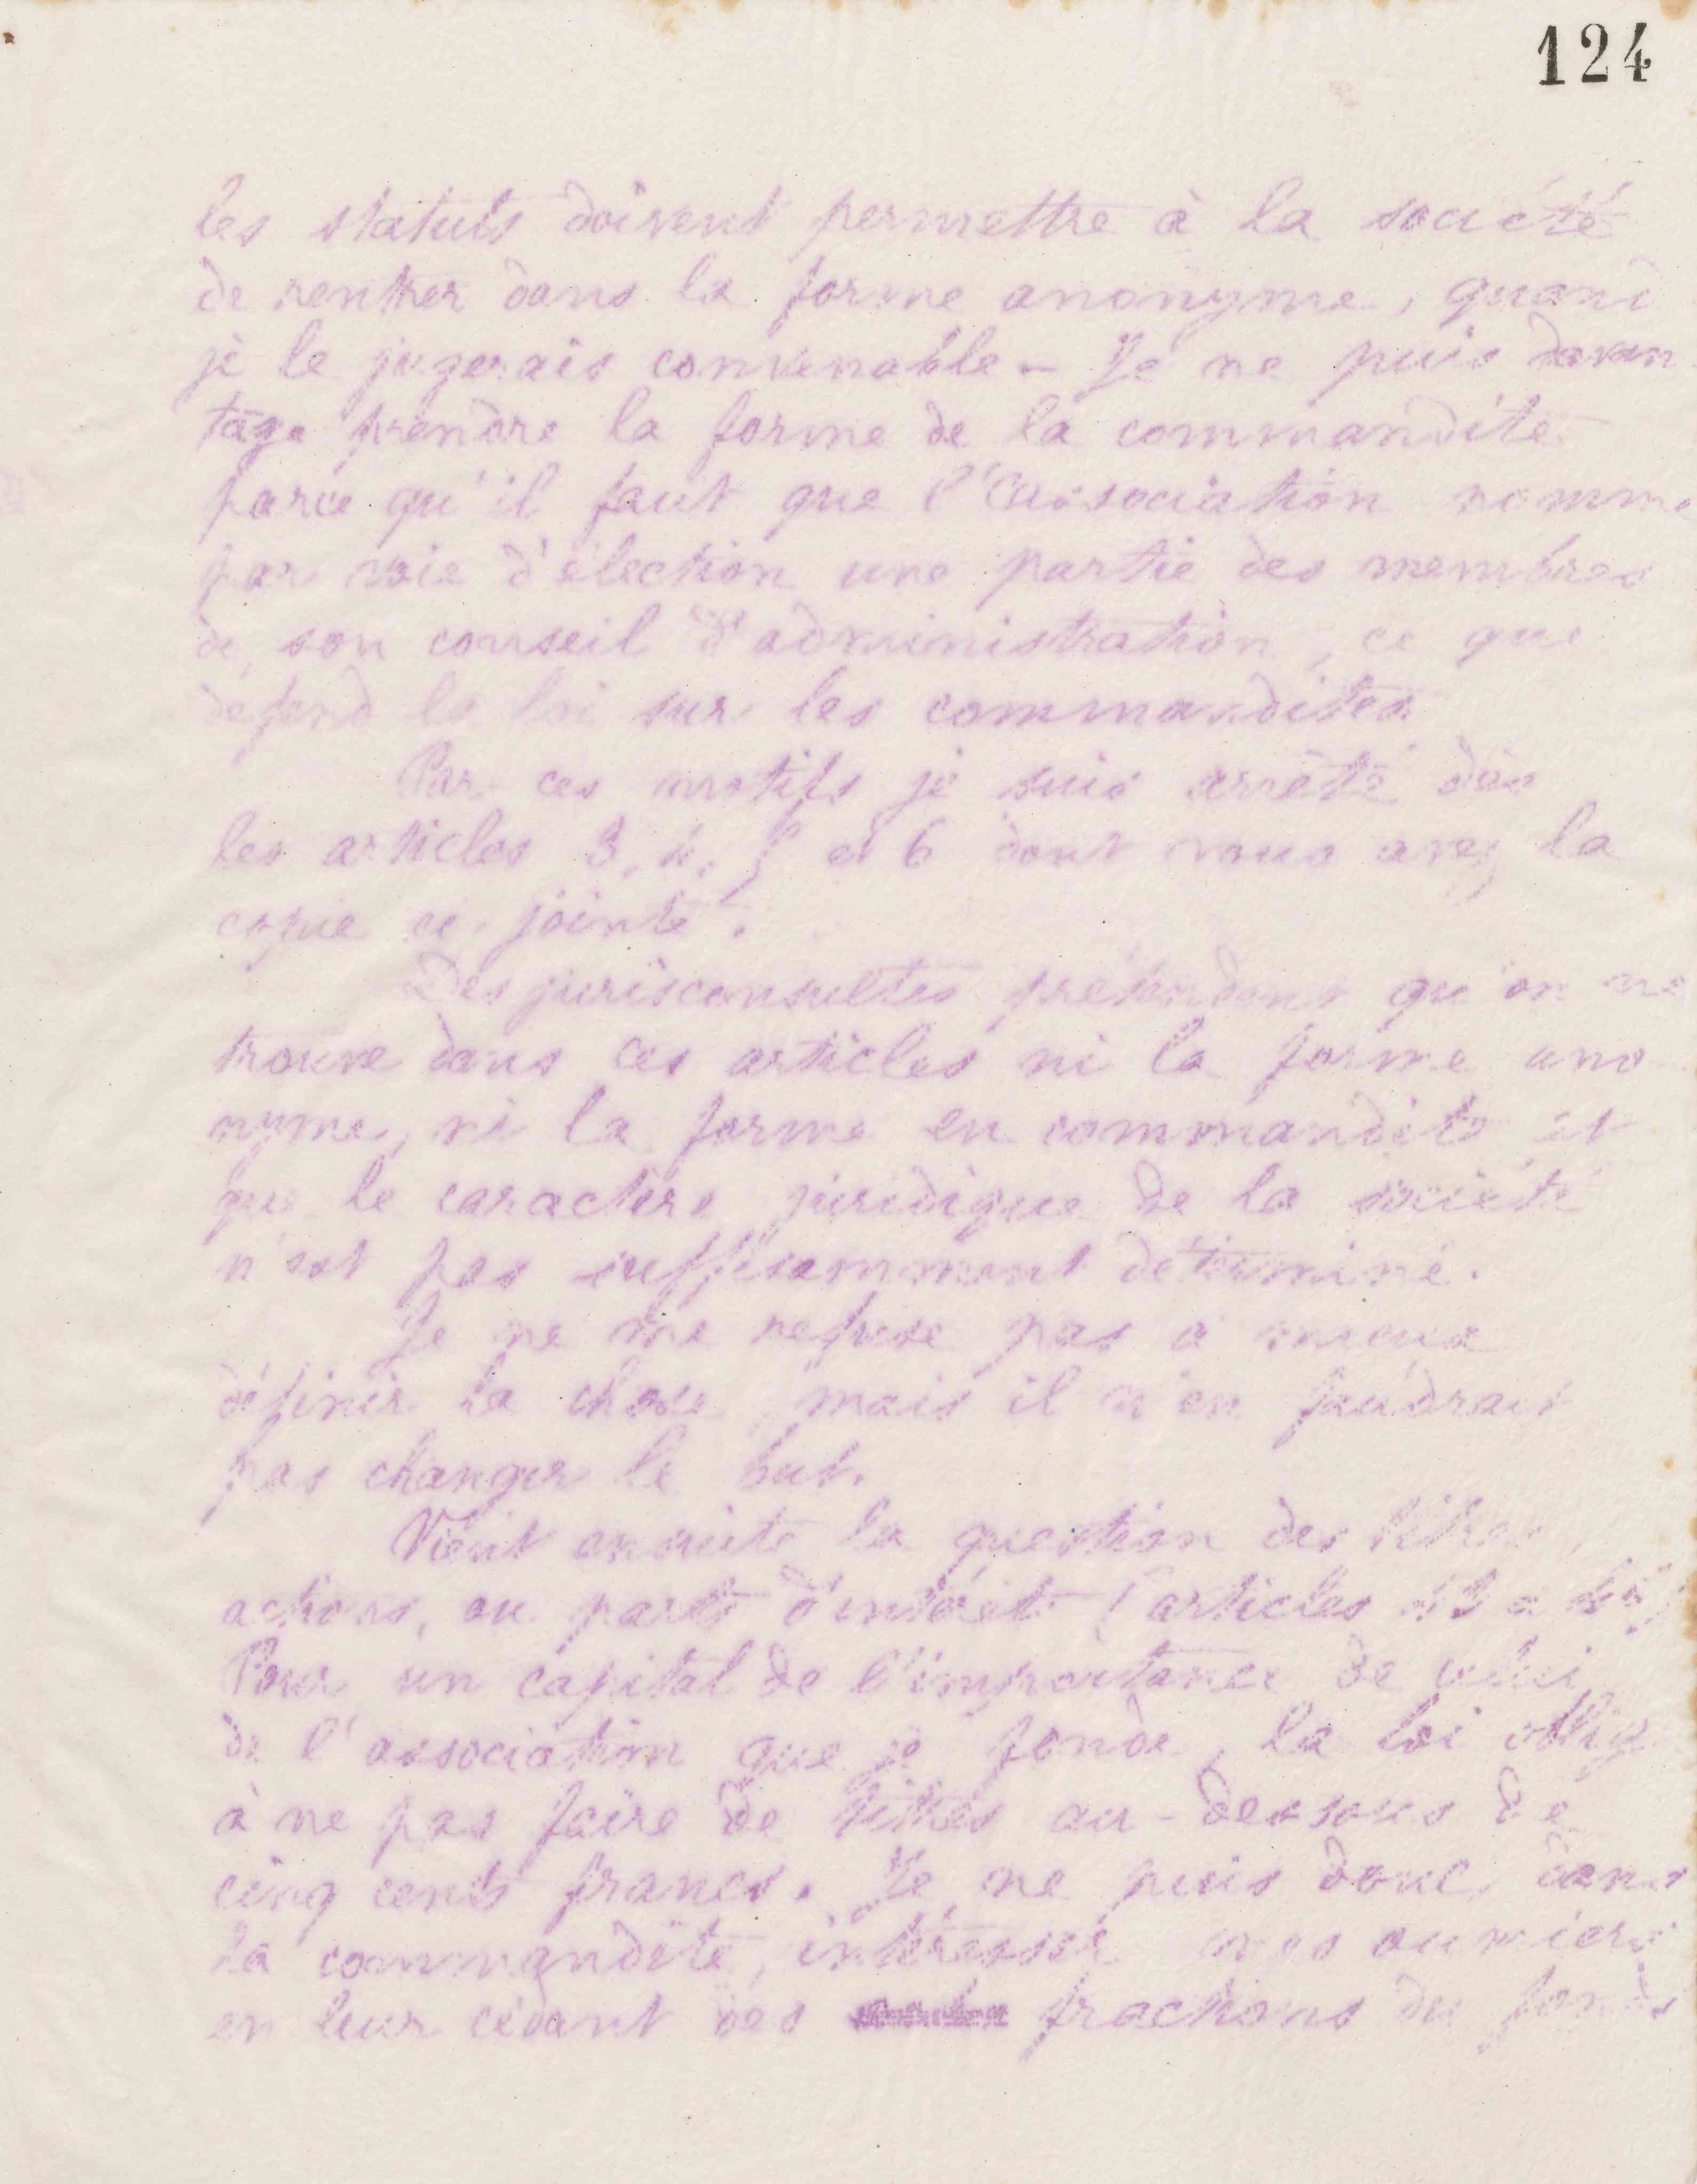 124
les statuts doivent permettre à la société
de rentrer dans la forme anonyme, quand
je le jugerais convenable - Je ne puis davan
tage prendre la forme de la commandite
parce qu'il faut que l'association nomme
par voie d'élection une partie des membres
de son conseil d'administration, ce que
défend la loi sur les commandites
Par ces motifs je suis arrêté dès
les articles 3, 4, 5 et 6 dont vous avez la
copie ci-jointe.
Des jurisconsultes prétendent qu'on ne
trouve dans ces articles ni la forme ano
nyme, ni la forme en commandite et
que le caractère juridique de la société
n'est pas suffisamment déterminé.
Je ne me refuse pas à mieux
définir la chose mais il n'en faudrait
pas changer le but.
Vient ensuite la question des titres,
actions, ou parts d'intérêt (articles
Pour un capital de l'importance de celui
de l'association que je fonde, la loi oblig
à ne pas faire de titres au-dessous de
cinq cents francs. Je ne puis donc dans
la commandite, intéresser mes ouvriers
en leur cédant des fractions du fonds